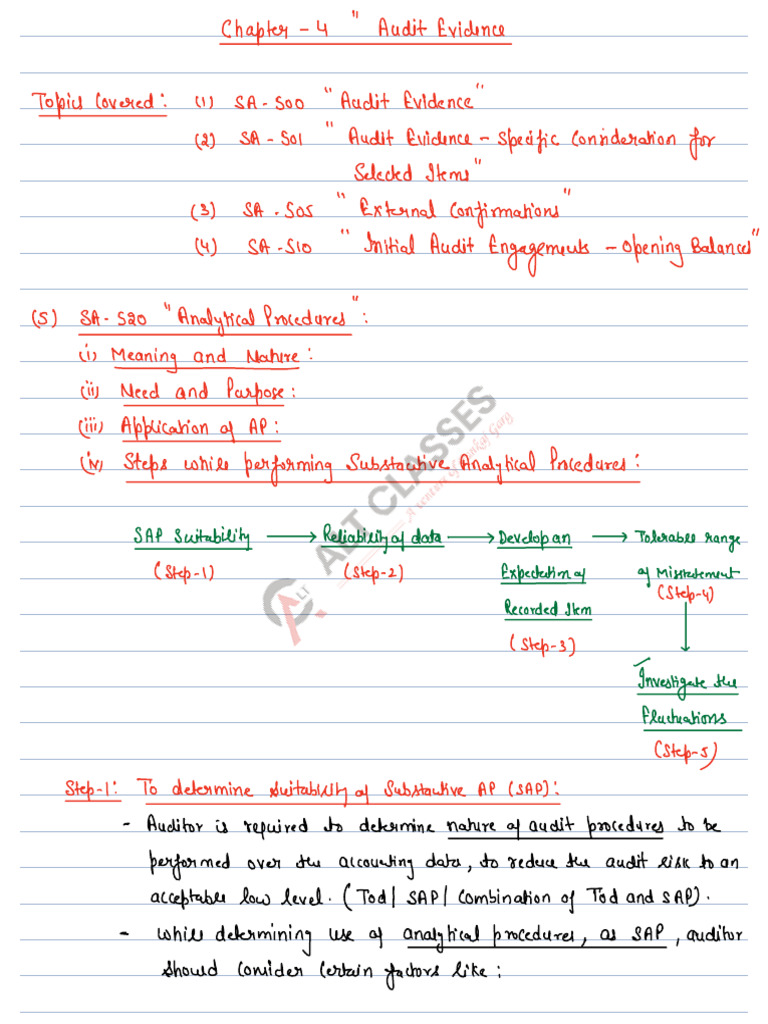 Chapter - 4 " Audit Evidence
Topics Covered: (1) SA - 500 "Audit Evidence"
(2) SA - 501 "Audit Evidence - Specific Consideration for
Selected Items"
(3) SA - 505 "External Confirmations"
(4) SA - 510 "Initial Audit Engagements - Opening Balances"
(5) SA - 520 "Analytical Procedures":
(i) Meaning and Nature:
(ii) Need and Purpose:
(iii) Application of AP:
(iv) Steps while performing Substantive Analytical Procedures:
ALT CLASSES
A venture of Pankaj Garg
LT
SAP Suitability → Reliability of data → Develop an → Tolerable range
(Step-1) (Step-2) Expectation of of Misstatement
Recorded Item (Step-4)
(Step-3)
Investigate the
Fluctuations
(Step-5)
Step-1: To determine suitability of Substantive AP (SAP):
- Auditor is required to determine nature of audit procedures to be
performed over the accounting data, to reduce the audit risk to an
acceptable low level. (Tod/ SAP/ Combination of Tod and SAP).
- while determining use of analytical procedures, as SAP, auditor
should consider certain factors like: